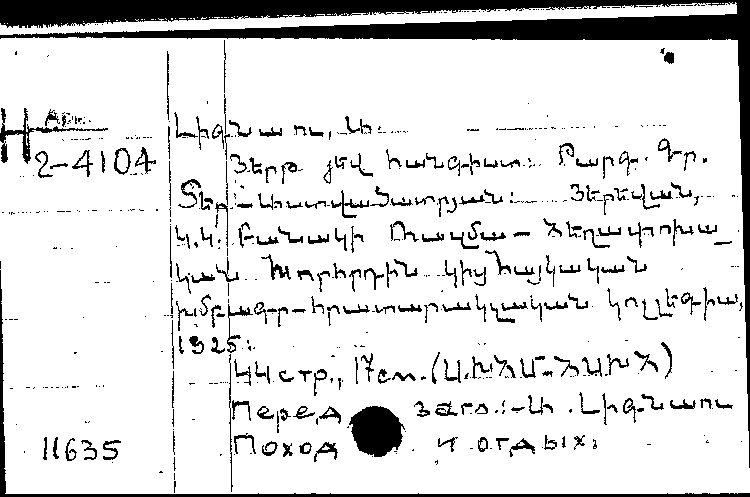 Арм.
Н
2-4104
Լիգնաու, Ա.
Յերթ յեվ հանգիստ: Թարգ. Գր.
Տեր-Աստվածատրյան: Յերեվան,
Կ.Կ. Բանակի Ռազմա-Հեղափոխա_
կան Խորհրդին կից հայկական
խմբագր-հրատարակչական կոլլեգիա,
1925:
44 стр., 17 см.
Перед загл.:-Ա. Լիգնաու
Поход и отдых.
11635